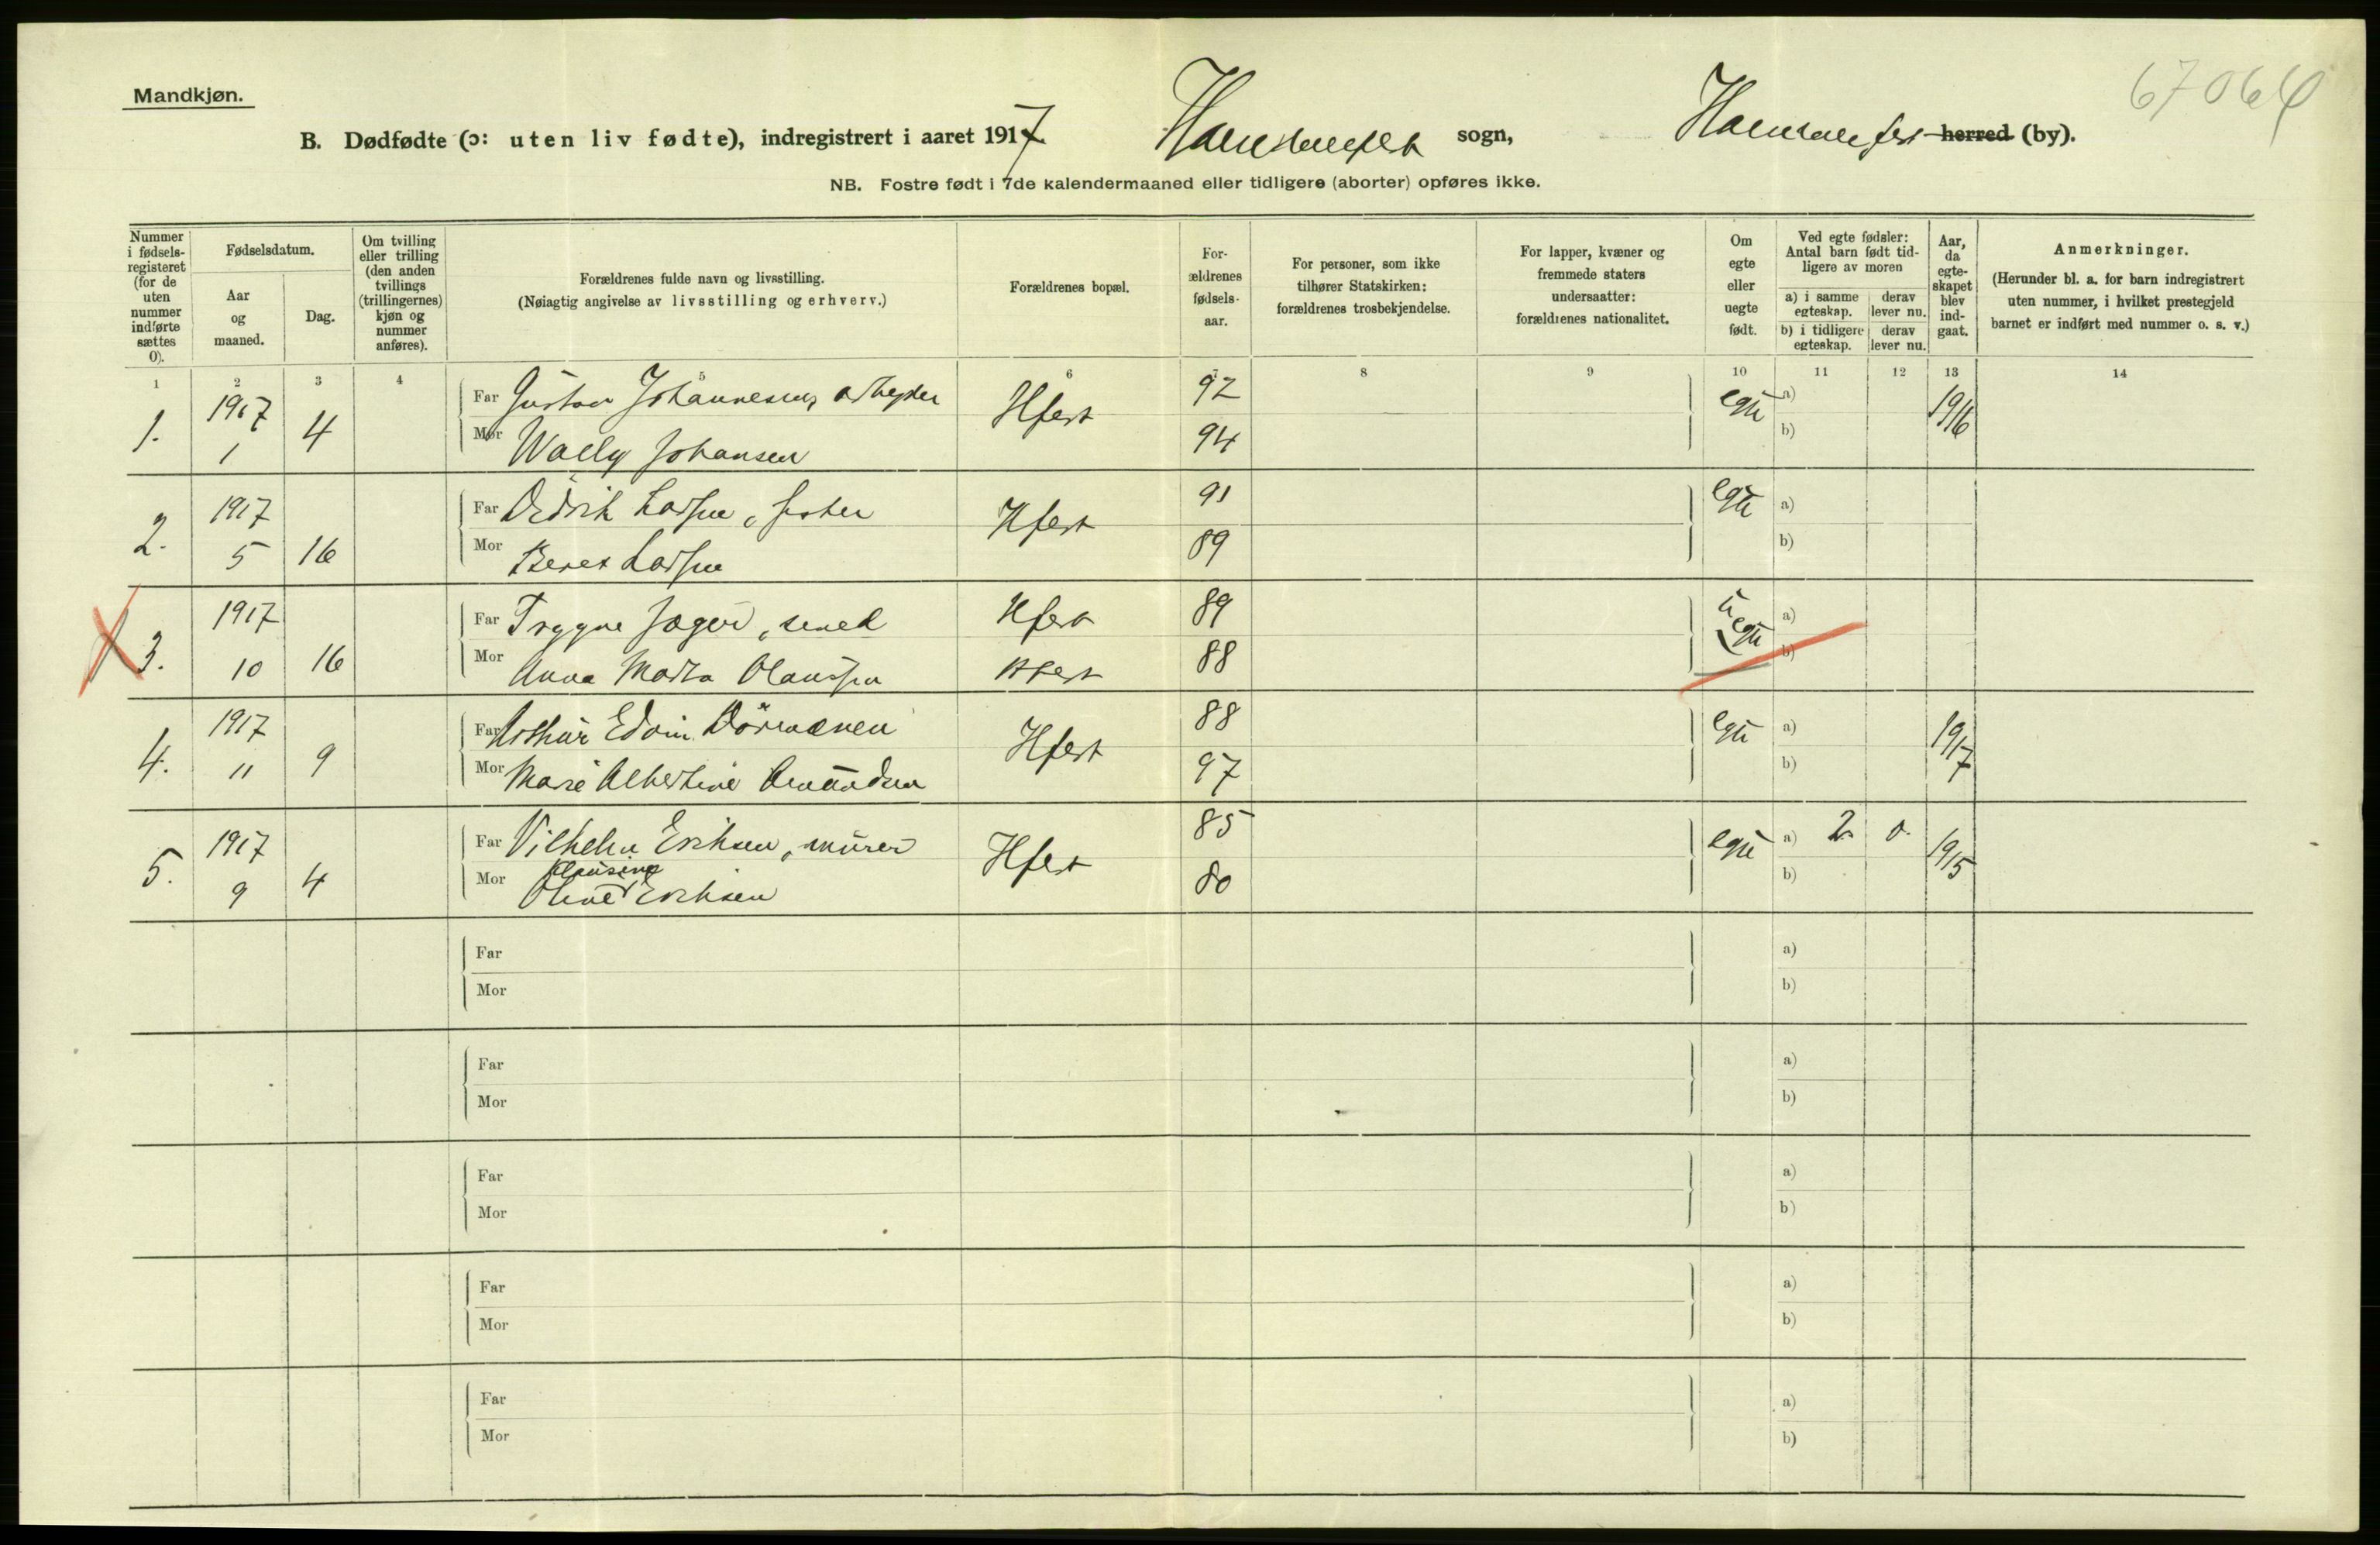 Mandkjøn.
67064
B. Dødfødte (ɔ: uten liv fødte), indregistrert i aaret 1917. Hammerfest sogn, Hammerfest herred (by).
NB. Fostre født i 7de kalendermaaned eller tidligere (aborter) opføres ikke.
Nummer i fødsels-registeret (for de uten nummer indførte sættes 0).
Fødselsdatum.
Aar og maaned.
Dag.
Om tvilling eller trilling (den anden tvillings (trillingernes) kjøn og nummer anføres).
Forældrenes fulde navn og livsstilling.
(Nøiagtig angivelse av livsstilling og erhverv.)
Forældrenes bopæl.
For-ældrenes fødsels-aar.
For personer, som ikke tilhører Statskirken: forældrenes trosbekjendelse.
For lapper, kvæner og fremmede staters undersaatter: forældrenes nationalitet.
Om egte eller uegte født.
Ved egte fødsler: Antal barn født tid-ligere av moren
a) i samme egteskap.
derav lever nu.
b) i tidligere egteskap.
derav lever nu.
Aar, da egte-skapet blev ind-gaat.
Anmerkninger.
(Herunder bl. a. for barn indregistrert uten nummer, i hvilket prestegjeld barnet er indført med nummer o. s. v.)
1 2 3 4 5 6 7 8 9 10 11 12 13 14
1. 1917 1 4 Far Gustav Johannesen, arbeider Hfest 92 egte a) 1916
Mor Wally Johansen 94 b)
2. 1917 5 16 Far Didrik Larsen, fisker Hfest 91 egte a)
Mor Beret Larsen 89 b)
3. 1917 10 16 Far Trygve Jæger, smed Hfest 89 uegte a)
Mor Anna Marta Olaussen Hfest 88 b)
4. 1917 11 9 Far Arthur Edvin Hfest 88 egte a) 1917
Mor Marie Albertine Amundsen 97 b)
5. 1917 9 4 Far Vilhelm Eriksen, murer Hfest 85 egte a) 2. 0. 1915
Klausine
Mor Oline Eriksen 80 b)
Far a)
Mor b)
Far a)
Mor b)
Far a)
Mor b)
Far a)
Mor b)
Far a)
Mor b)